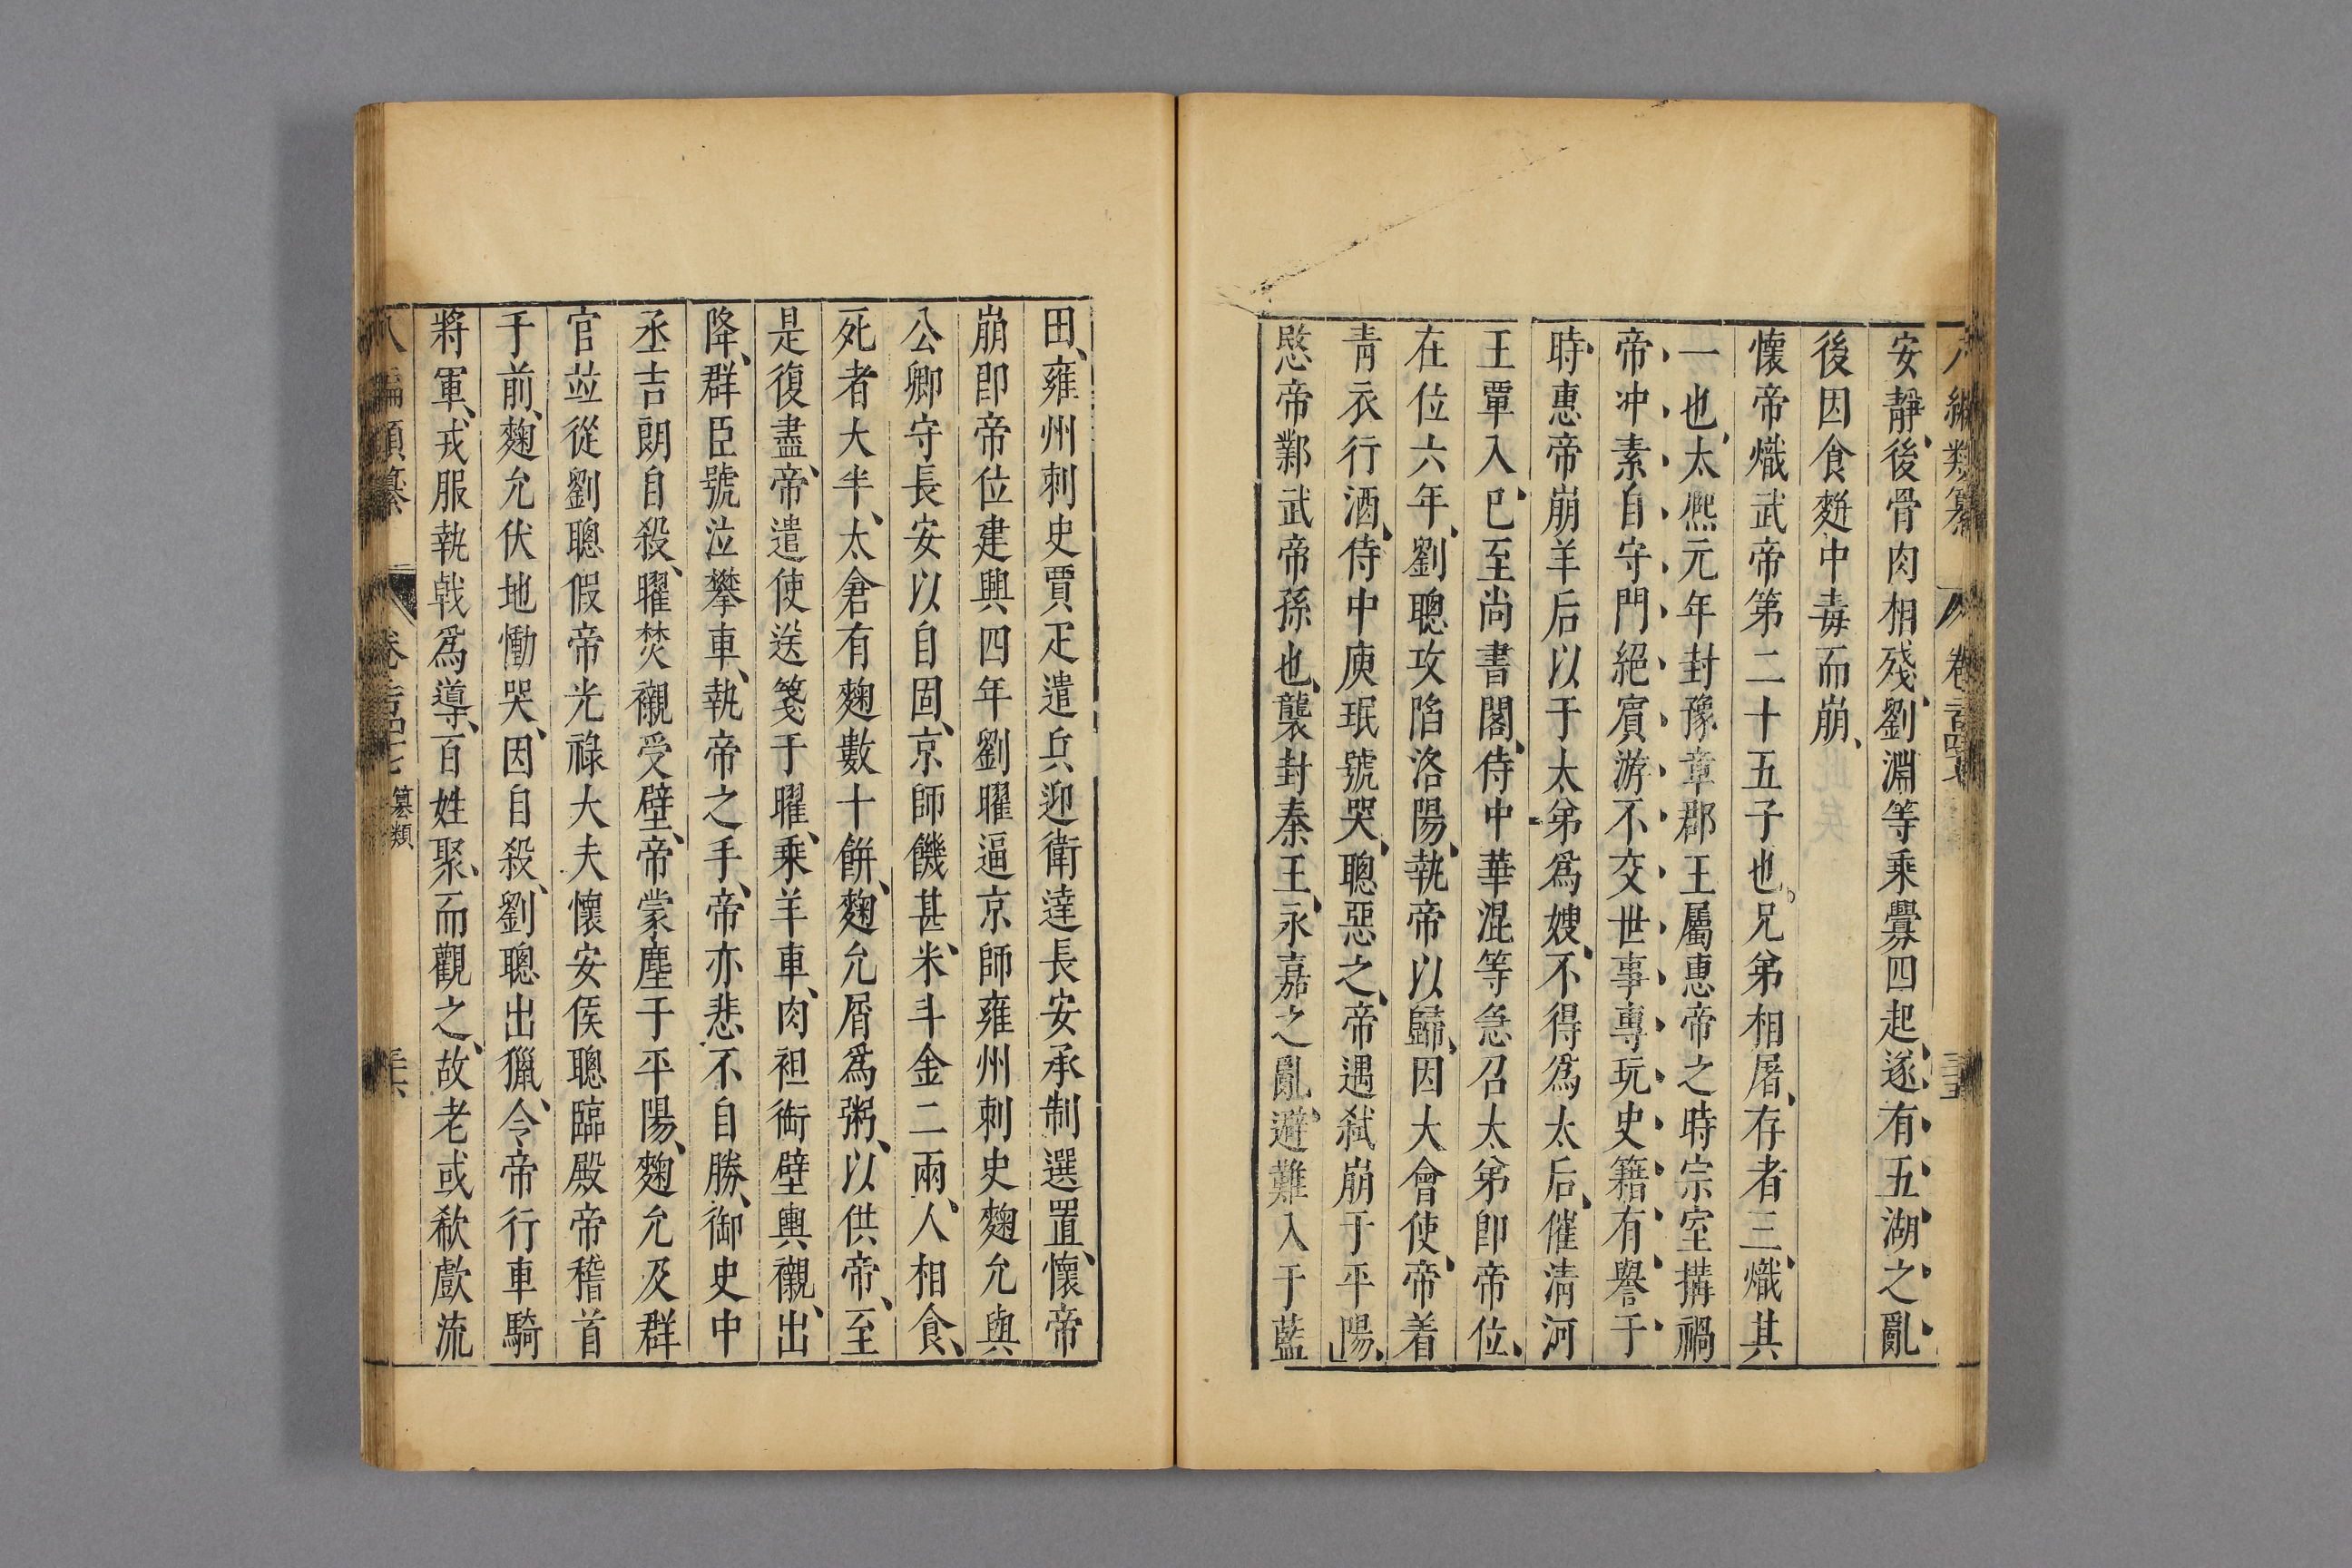 八編類纂 卷一百四十七 三十五
安靜、後骨肉相殘、劉淵等乘釁四起、遂有五湖之亂
後因食䴵中毒而崩、
懷帝熾武帝第二十五子也。兄弟相屠、存者三、熾其
一也、太熈元年封豫章郡王屬惠帝之時宗室搆禍
帝冲素自守門絕賓游不交世事專玩史籍有譽于
時、惠帝崩羊后以于太弟爲嫂、不得爲太后、催清河
王覃入、巳至尚書閣、侍中華混等急召太弟卽帝位、
在位六年、劉聰攻陷洛陽、執帝以歸、因大會使、帝着
青衣行酒、侍中庾珉號哭、聰惡之、帝遇弑崩于平陽、
愍帝鄴武帝孫也、襲封秦王、永嘉之亂、避難入于藍
田、雍州刺史賈疋遣兵迎衛達長安承制選置、懷帝
崩卽帝位建興四年劉曜逼京師雍州刺史麴允與
公卿守長安以自固、京師饑甚、米斗金二兩、人相食、
死者大半、太倉有麴數十餅、麴允屑爲粥、以供帝、至
是復盡、帝遣使送箋于曜、乘羊車、肉袒銜璧輿櫬、出
降、群臣號泣攀車、執帝之手、帝亦悲不自勝、御史中
丞吉朗自殺、曜焚櫬受璧、帝蒙塵于平陽、麴允及群
官並從劉聰假帝光祿大夫懷安侯聰臨殿帝稽首
于前、麴允伏地慟哭、因自殺、劉聰出獵、令帝行車騎
將軍、戎服執戟爲導、百姓聚、而觀之、故老或欷歔流
八編類纂 卷一百四十七 纂類 三十六